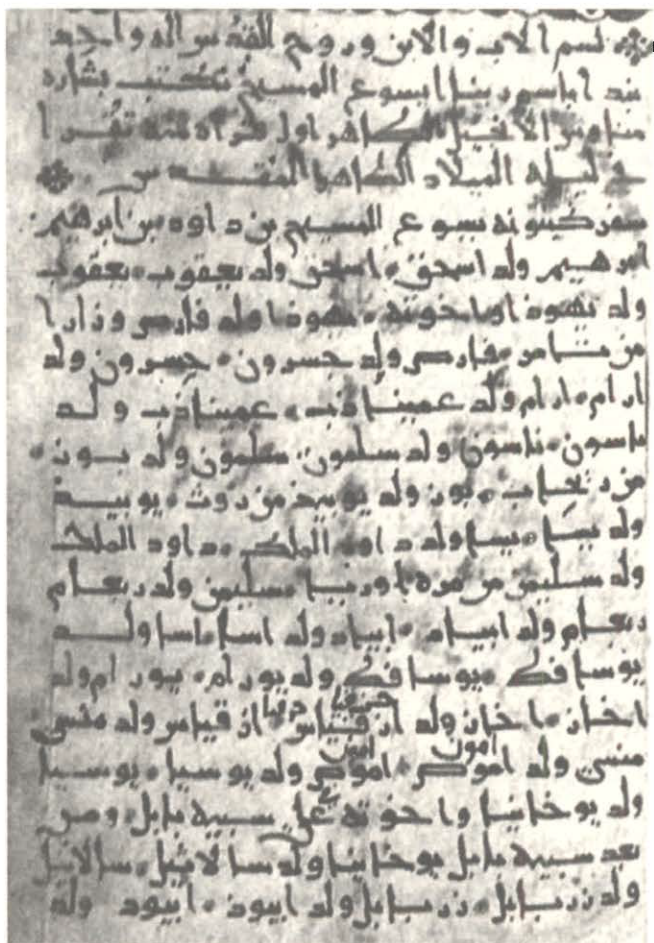 بسم الاب والابن وروح القدس اله واحد
نبدا باسم ربنا ايسوع المسيح نكتب بشاره
متاوس الانجيل الطاهر اول قراه منه تقرا
في ليله الميلاد الطاهر المقدس
سفر كينونه يسوع المسيح بن داود بن ابرهيم
ابرهيم ولد اسحق اسحق ولد يعقوب يعقوب
ولد يهوذا واخوته يهوذا ولد فارص وزارا
من تامر فارص ولد حسرون حسرون ولد
ارام ارام ولد عميناذب عميناذب ولد
ناسون ناسون ولد سلمون سلمون ولد بوز
من رحاب بوز ولد يوبيد من روث يوبيد
ولد يسا يسا ولد داود الملك داود الملك
ولد سليمن من مره اوريا سليمن ولد ربعام
ربعام ولد ابياد ابياد ولد اسا اسا ولد
يوسافط يوسافط ولد يورام يورام ولد
احاز احاز ولد ازقياس ازقياس ولد منسي
منسي ولد اموص اموص ولد يوسيا يوسيا
ولد يوخانيا واخوته على سبيه بابل ومن
بعد سبيه بابل يوخانيا ولد سالاثيل سالاثيل
ولد زربابل زربابل ولد ابيود ابيود ولد